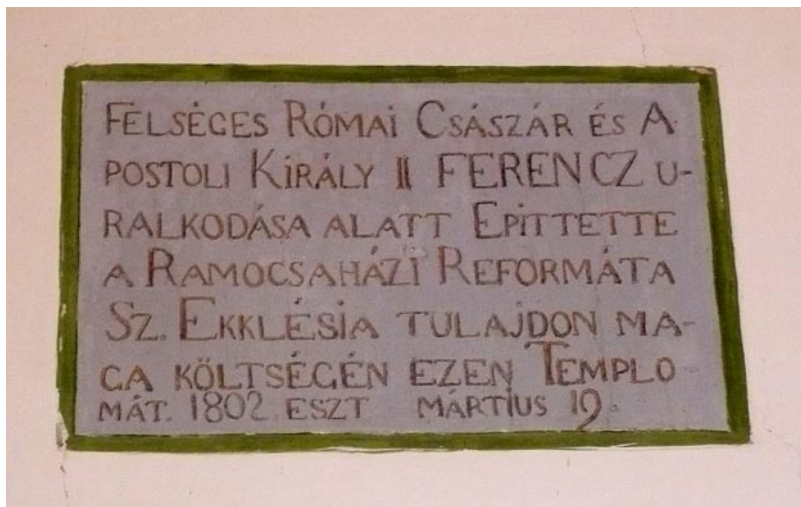 FELSÉGES RÓMAI CSÁSZÁR ÉS A-
POSTOLI KIRÁLY II FERENCZ U-
RALKODÁSA ALATT EPITTETTE
A RAMOCSAHÁZI REFORMÁTA
SZ. EKKLÉSIA TULAJDON MA-
GA KÖLTSÉGÉN EZEN TEMPLO-
MÁT. 1802. ESZT MÁRTIUS 19.